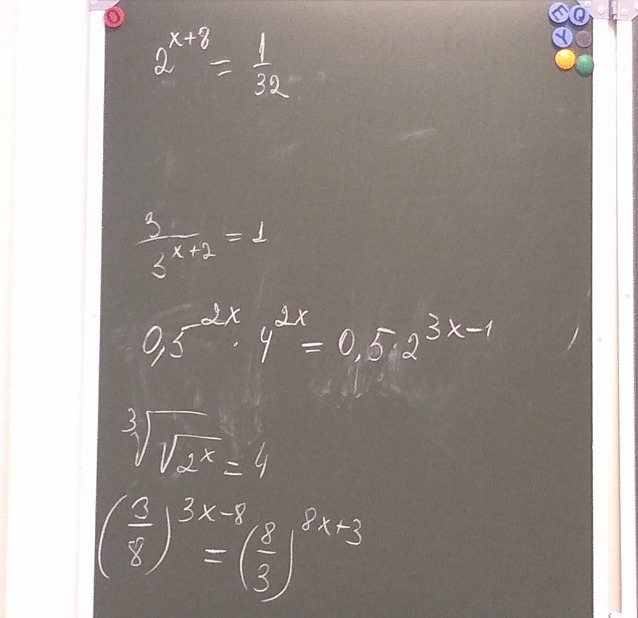 2^{x+8} = \frac{1}{32}
\frac{3}{3^{x+2}} = 1
0,5^{2x} · 4^{2x} = 0,5 · 2^{3x-1}
\sqrt[3]{\sqrt{2^x}} = 4
(\frac{3}{8})^{3x-8} = (\frac{8}{3})^{8x+3}